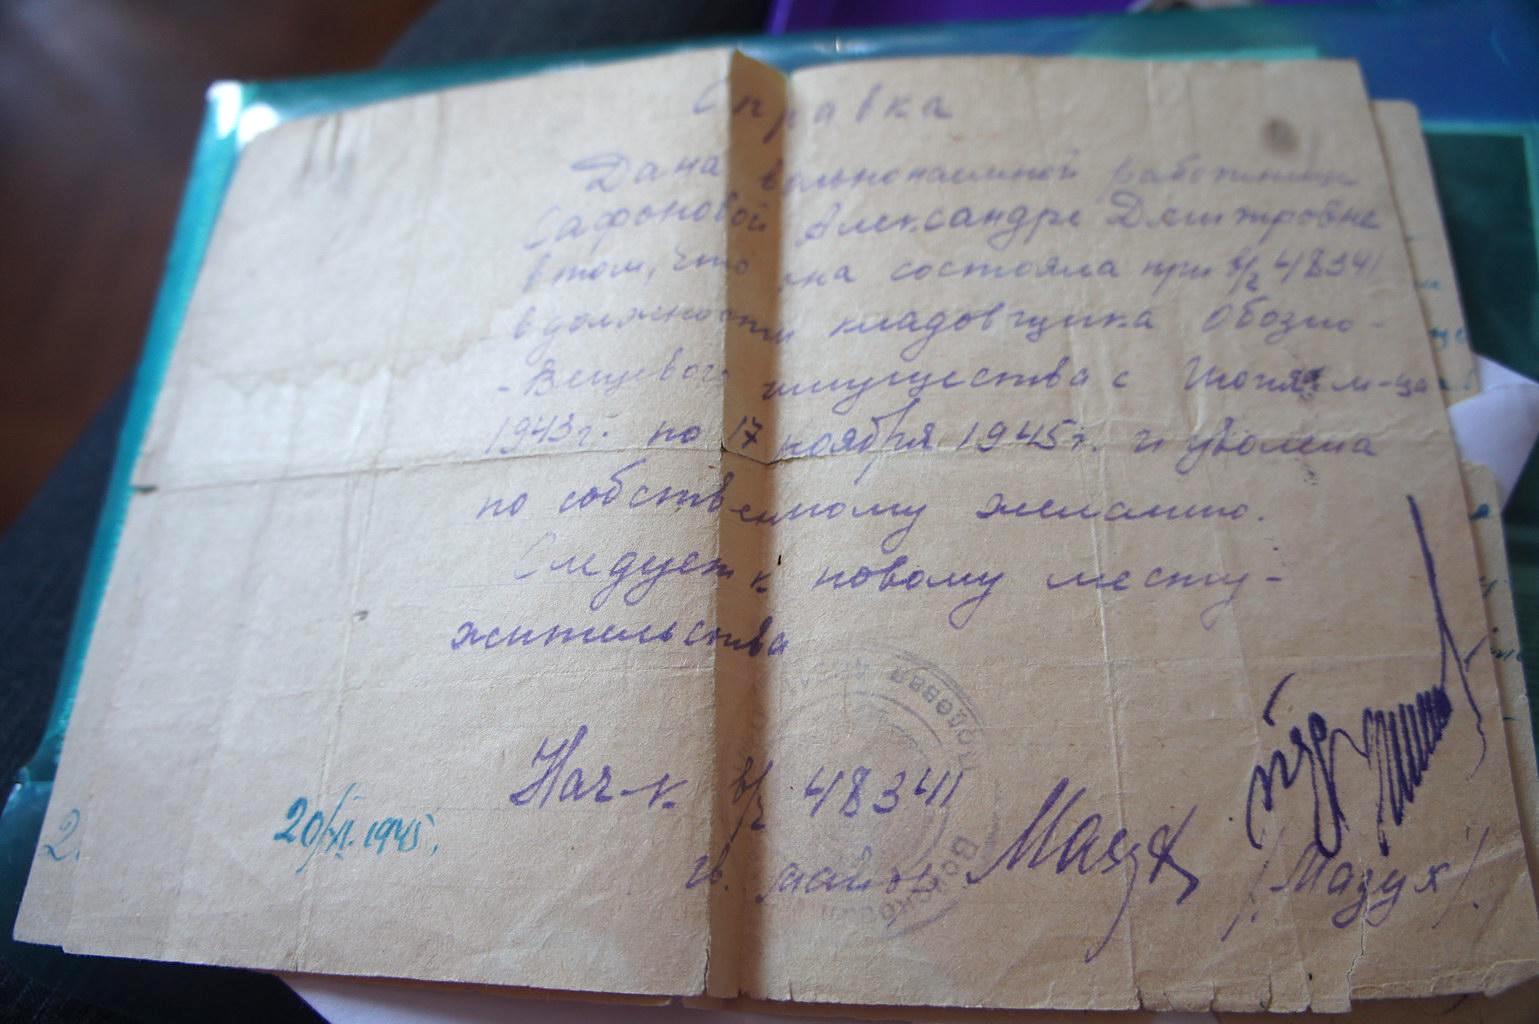 Справка
Дана вольнонаемной работнице
Сафоновой Александре Дмитровне
в том, что она состояла при в/ч 48341
в должности кладовщика Обозно-
-Вещевого имущества с Июня м-ца
1943г. по 17 ноября 1945г. и уволена
по собственному желанию.
Следует к новому месту-
жительства
Нач-к в/ч 48341
гв. майор Мазух /Мазух/.
20/XI.1945.
2.
Полевая
Войсковая